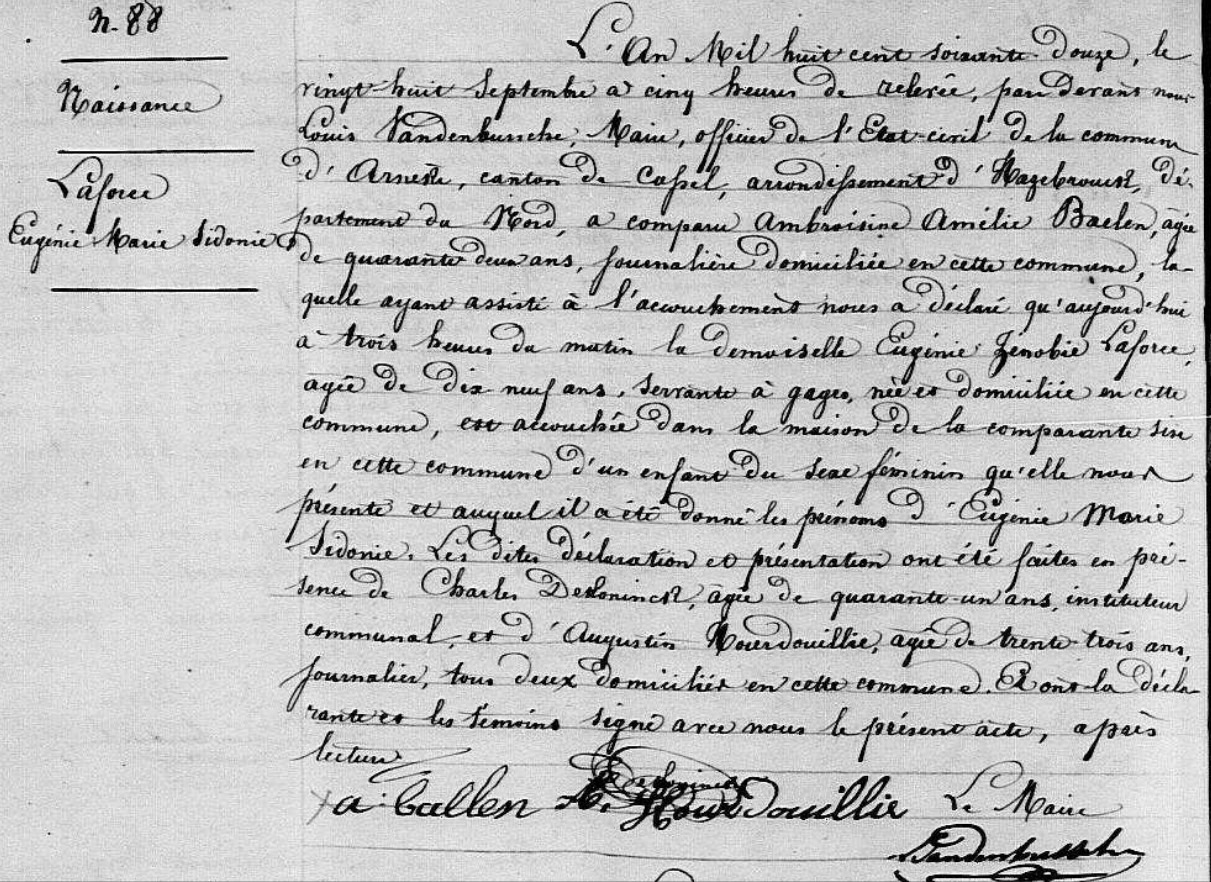 N. 88
Naissance
Laforce
Eugénie Marie Sidonie
L'An Mil huit cent soixante-douze, le
vingt-huit Septembre à cinq heures de relevée, par devant nous
Louis Vandenbussche, Maire, officier de l'Etat-civil de la commune
d'Arnèke, canton de Cassel, arrondissement d'Hazebrouck, dé-
partement du Nord, a comparu Ambroisine Amélie Baelen, agée
de quarante deux ans, journalière domiciliée en cette commune, la-
quelle ayant assisté à l'accouchement nous a déclaré qu'aujourd'hui
à trois heures du matin la demoiselle Eugénie Zénobie Laforce,
agée de dix-neuf ans, servante à gages, née et domiciliée en cette
commune, est accouchée dans la maison de la comparante sise
en cette commune d'un enfant du sexe féminin qu'elle nous
présente et auquel il a été donné les prénoms d'Eugénie Marie
Sidonie. Les dites déclaration et présentation ont été faites en pré-
sence de Charles Dekoninck, agée de quarante-un ans, instituteur
communal, et d'Augustin Hourdouillie, agée de trente-trois ans,
journalier, tous deux domiciliés en cette commune. Et ont la décla-
rante et les témoins signé avec nous le présent acte, après
lecture
a. ballen A. Hourdouillie Le Maire
Vandenbussche